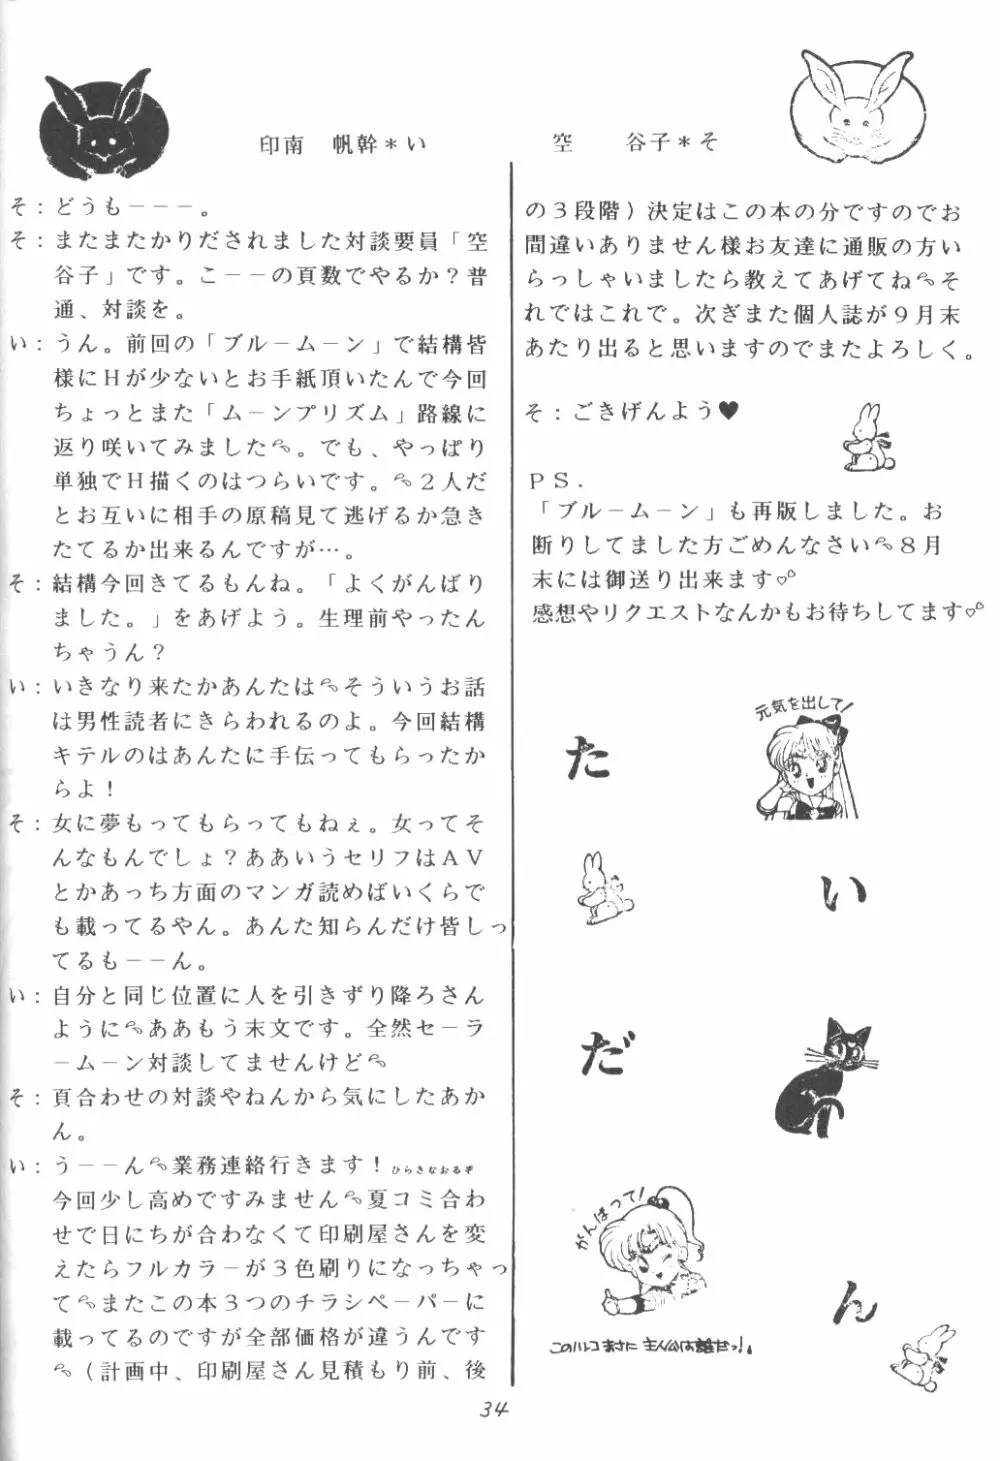 印南　帆幹＊い　　空　谷子＊そ
そ：どうも－－－。
そ：またまたかりだされました対談要員「空
谷子」です。こ－－の頁数でやるか？普
通、対談を。
い：うん。前回の「ブル－ム－ン」で結構皆
様にＨが少ないとお手紙頂いたんで今回
ちょっとまた「ム－ンプリズム」路線に
返り咲いてみました。でも、やっぱり
単独でＨ描くのはつらいです。２人だ
とお互いに相手の原稿見て逃げるか急き
たてるか出来るんですが…。
そ：結構今回きてるもんね。「よくがんばり
ました。」をあげよう。生理前やったん
ちゃうん？
い：いきなり来たかあんたはそういうお話
は男性読者にきらわれるのよ。今回結構
キテルのはあんたに手伝ってもらったか
らよ！
そ：女に夢もってもらってもねぇ。女ってそ
んなもんでしょ？ああいうセリフはＡＶ
とかあっち方面のマンガ読めばいくらで
も載ってるやん。あんた知らんだけ皆しっ
てるも－－ん。
い：自分と同じ位置に人を引きずり降ろさん
ようにああもう末文です。全然セ－ラ
－ム－ン対談してませんけど
そ：頁合わせの対談やねんから気にしたあか
ん。
い：う－－ん業務連絡行きます！ひらきなおるぞ
今回少し高めですみません夏コミ合わ
せで日にちが合わなくて印刷屋さんを変
えたらフルカラ－が３色刷りになっちゃっ
てまたこの本３つのチラシペ－パ－に
載ってるのですが全部価格が違うんです
（計画中、印刷屋さん見積もり前、後
の３段階）決定はこの本の分ですのでお
間違いありません様お友達に通販の方い
らっしゃいましたら教えてあげてねそ
れではこれで。次ぎまた個人誌が９月末
あたり出ると思いますのでまたよろしく。
そ：ごきげんよう♥
ＰＳ．
「ブル－ム－ン」も再版しました。お
断りしてました方ごめんなさい８月
末には御送り出来ます♡
感想やリクエストなんかもお待ちしてます♡
元気を出して！
た
い
だ
がんばって！
ん
このハレコまさに主人公は誰だっ！。
34